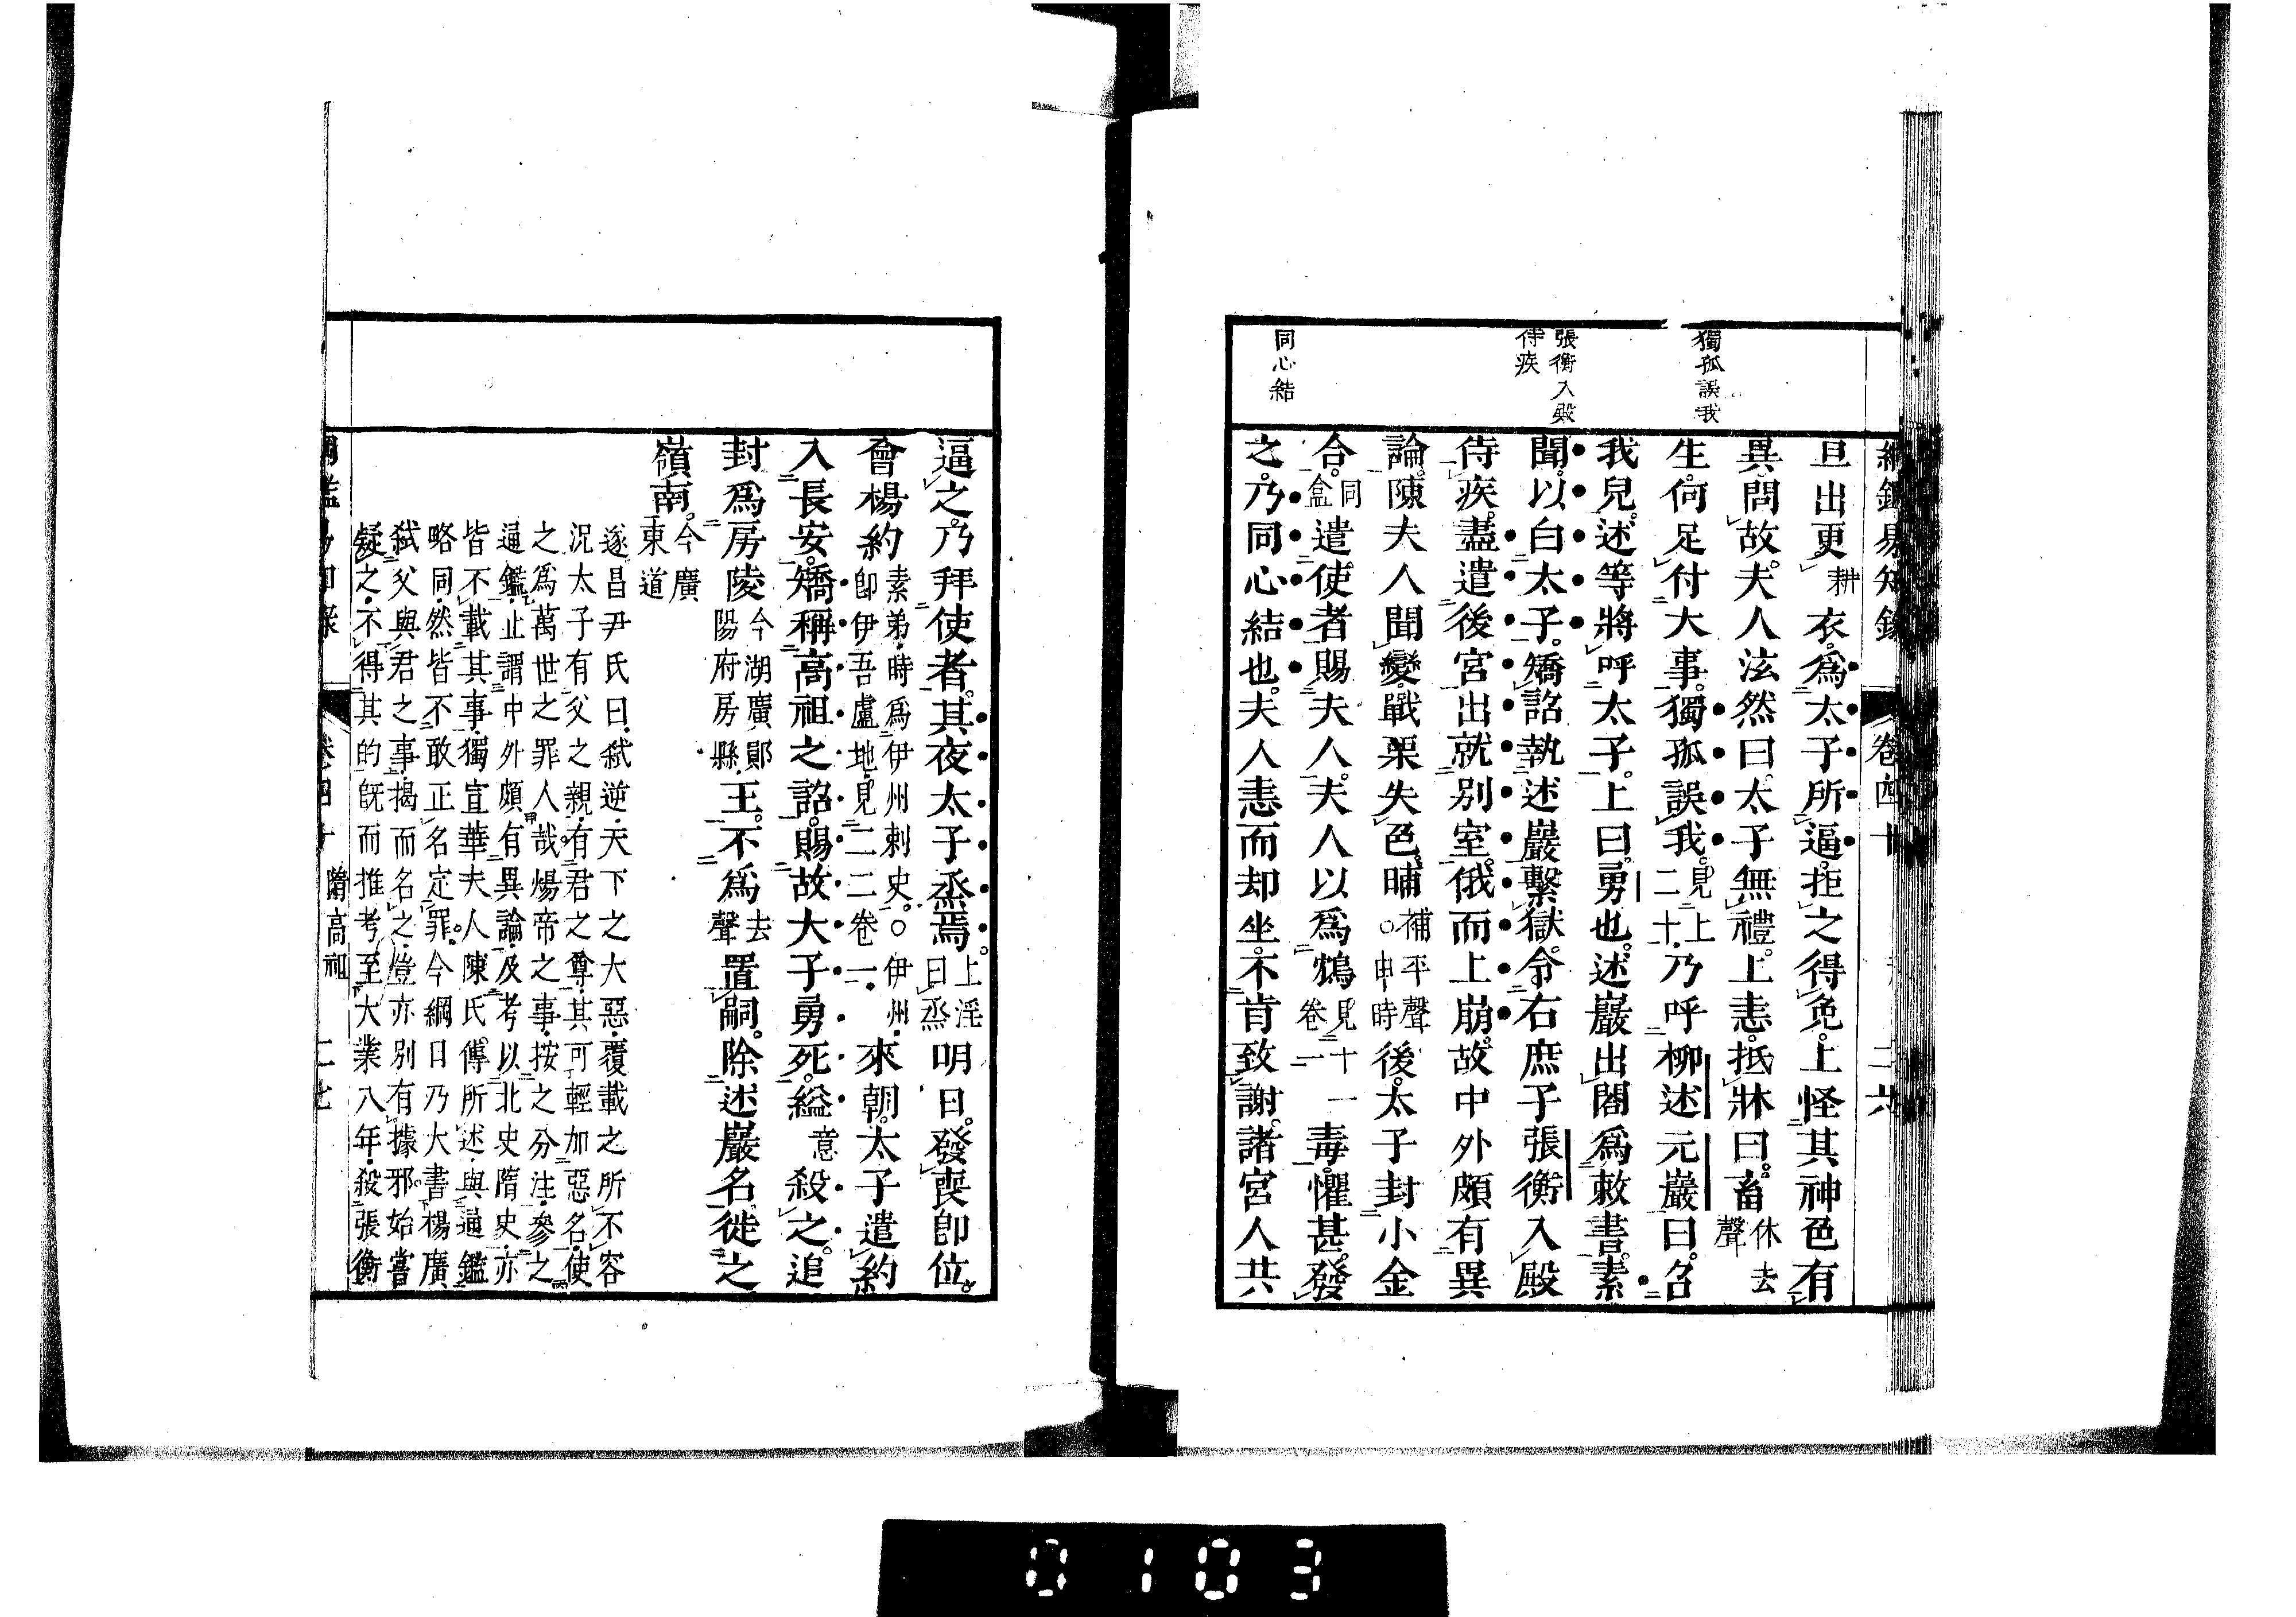 綱鑑易知錄 卷四十 二六
獨孤誤我
張衡入殿
侍疾
同心結
旦出更耕衣。爲太子所逼。拒之得免。上怪其神色有
異。問故。夫人泫然曰。太子無禮。上恚。抵牀曰。畜休去聲
生。何足付大事。獨孤誤我。見上二十。乃呼柳述元巖曰。召
我兒。述等將呼太子。上曰。勇也。述巖出閤爲敕書。素
聞。以白太子。矯詔執述巖繫獄。令右庶子張衡入殿
侍疾。盡遣後宮出就別室。俄而上崩。故中外頗有異
論。陳夫人聞變。戰栗失色。晡補平聲○申時後。太子封小金
合。同盒遣使者賜夫人。夫人以爲鴆見十一卷一毒。懼甚。發
之。乃同心結也。夫人恚而却坐。不肯致謝。諸宮人共
逼之。乃拜使者。其夜太子烝焉。上淫曰烝明日。發喪即位。
會楊約素弟。時爲伊州刺史。○伊州。即伊吾盧地。見二二卷一。來朝。太子遣約
入長安。矯稱高祖之詔。賜故大子勇死。縊意殺之。追
封爲房陵今湖廣鄖陽府房縣。王。不爲去聲置嗣。除述巖名。徙之
嶺南。今廣東道
遂昌尹氏曰。弑逆。天下之大惡。覆載之所不容
況太子有父之親。有君之尊。其可輕加惡名。使
之爲萬世之罪人哉。煬帝之事。按之分注。參之
通鑑。止謂中外頗有異論。及考以北史隋史。亦
皆不載其事。獨宣華夫人陳氏傳所述。與通鑑
略同。然皆不敢正名定罪。今綱目乃大書楊廣
弑父與君之事。揭而名之。豈亦別有據邪。始嘗
疑之。不得其的。旣而推考至大業八年。殺張衡
綱鑑易知錄 卷四十 隋高祖 二七
0103